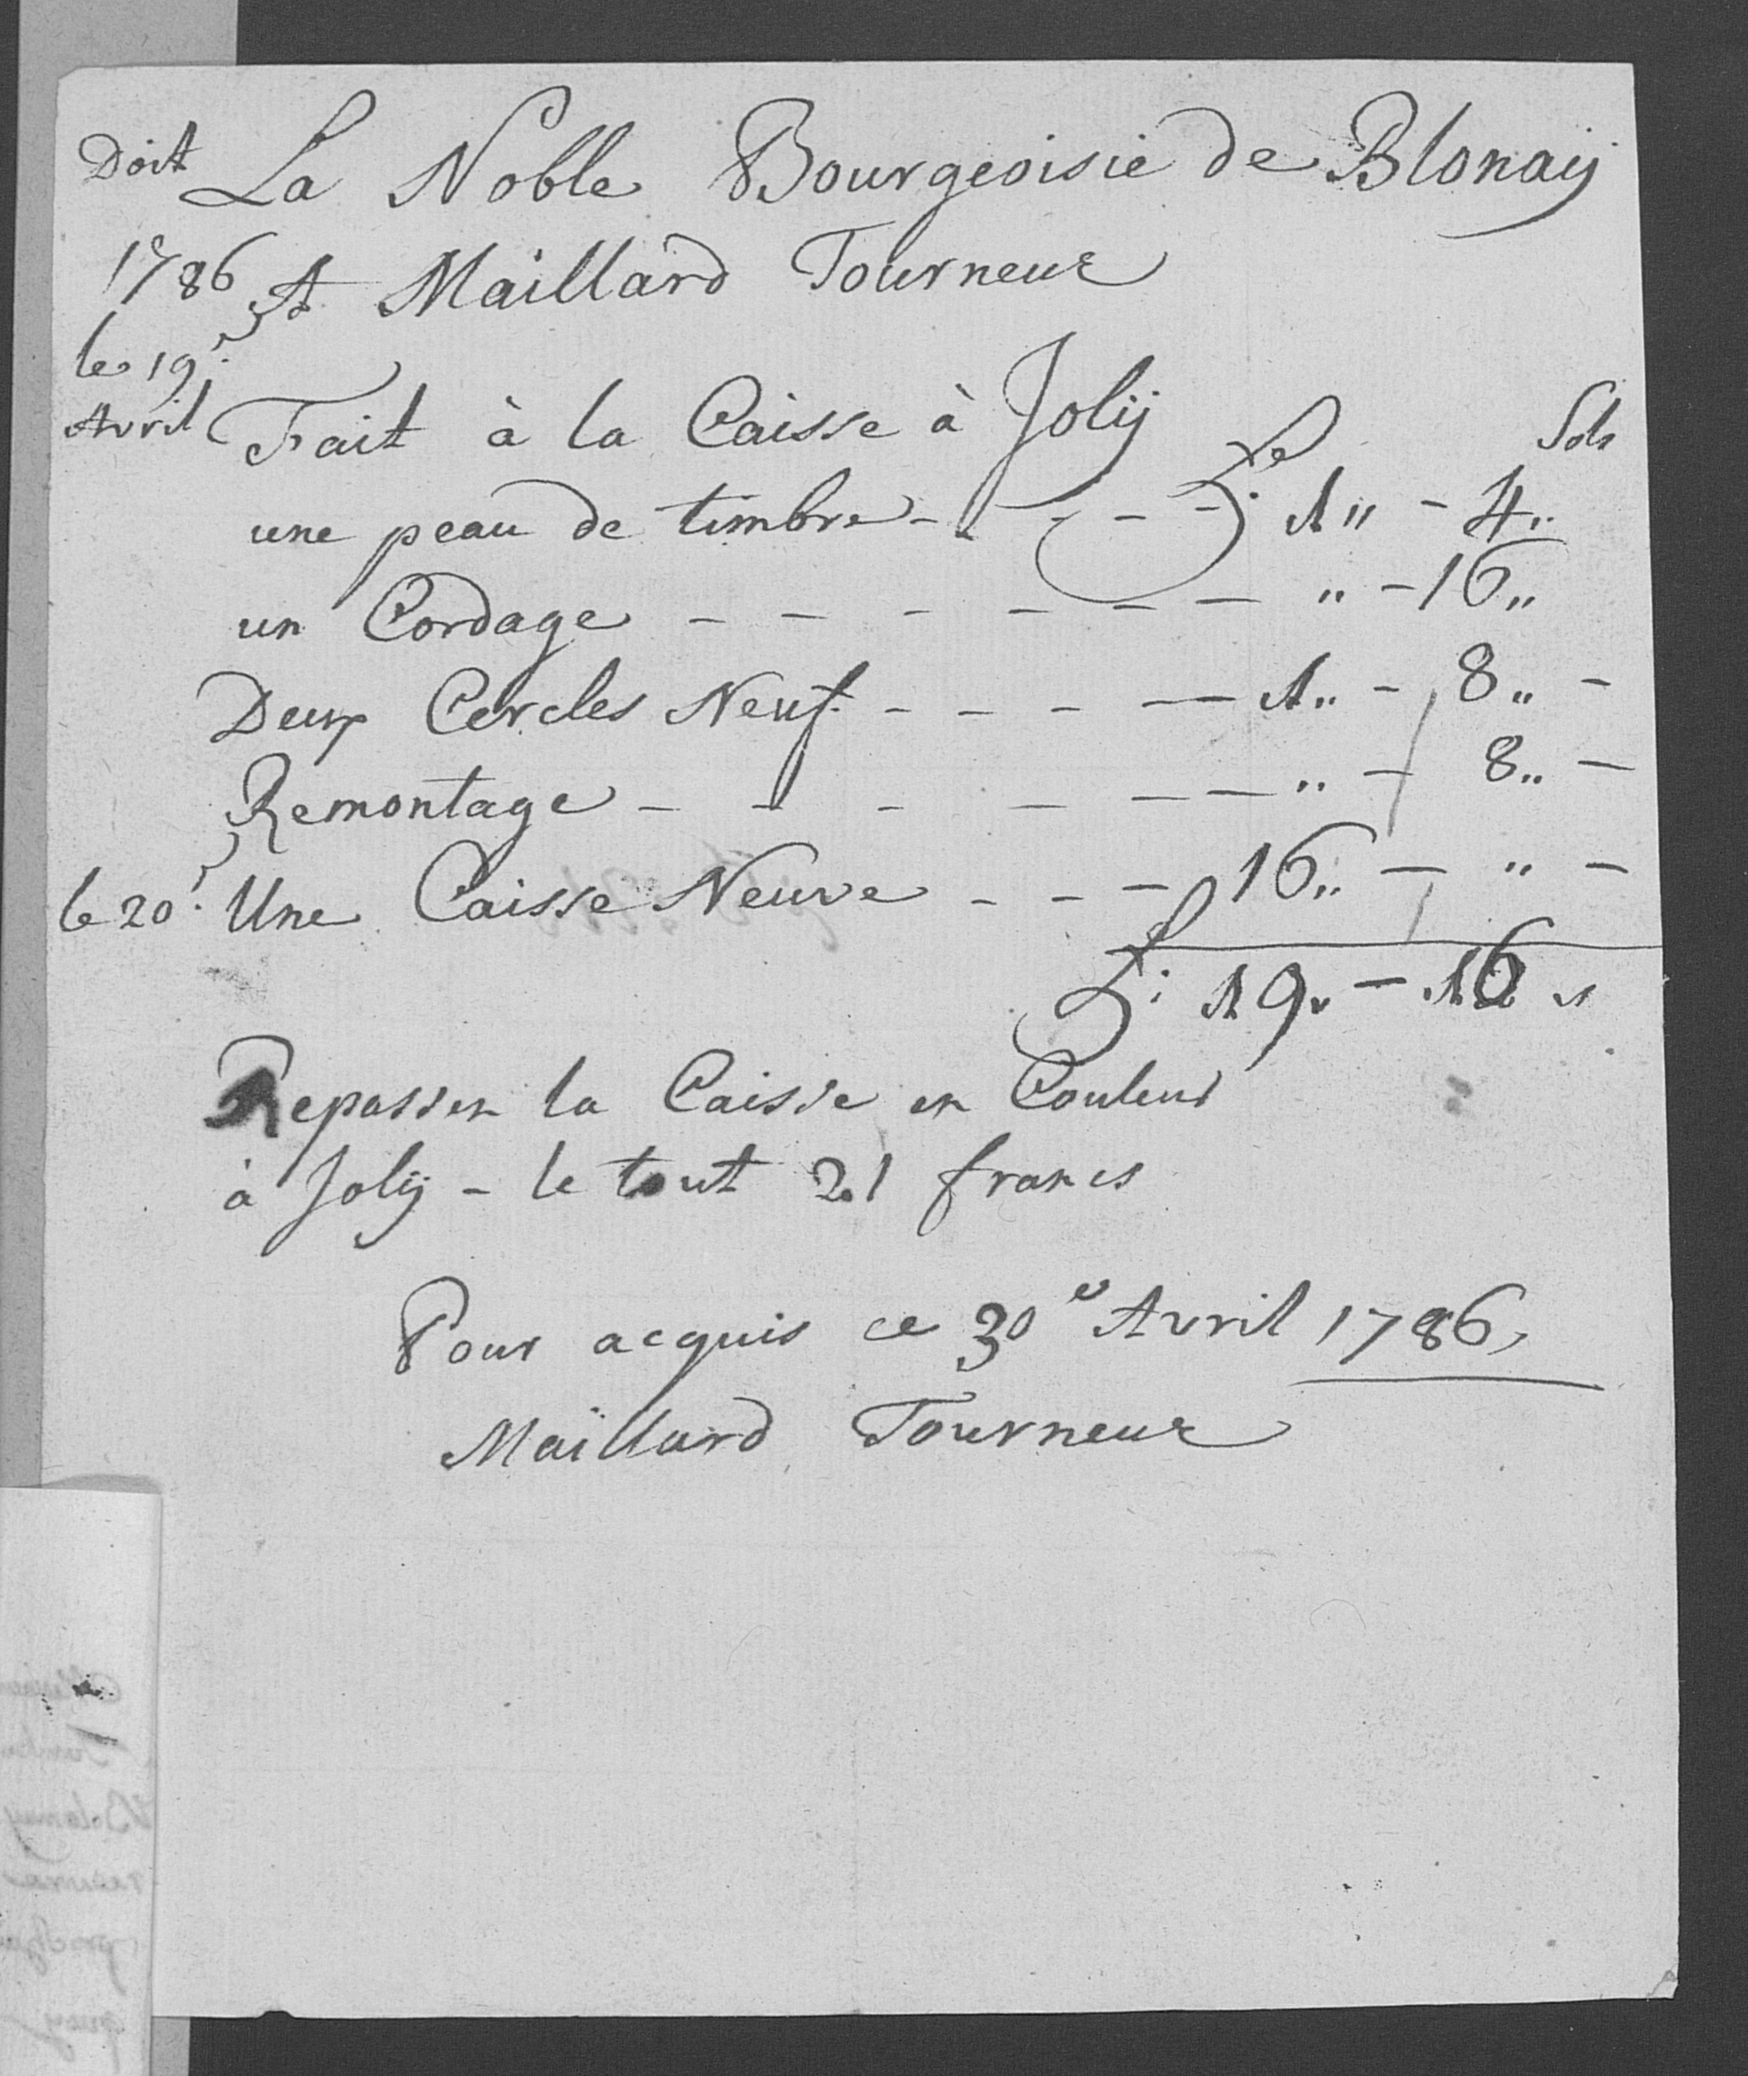 Doit La Noble Bourgeoisie de Blonaÿ
1786 A Maillard Tourneur
le 19.e
Avril Fait à la Caisse à Jolÿ L Sols
une peau de timbre - - - - L: 1 " - 4 "
un Cordage - - - - - - " - 16 "
Deux Cercles Neuf - - - - 1 " - 8 " -
Remontage - - - - - - " - 8 " -
le 20.e Une Caisse Neuve - - - 16 " - " -
L: 19 " - 16 "
Repasser la Caisse en Couleur
à Jolÿ - le tout 21 francs
Pour acquis ce 30e Avril 1786,
Maillard Tourneur